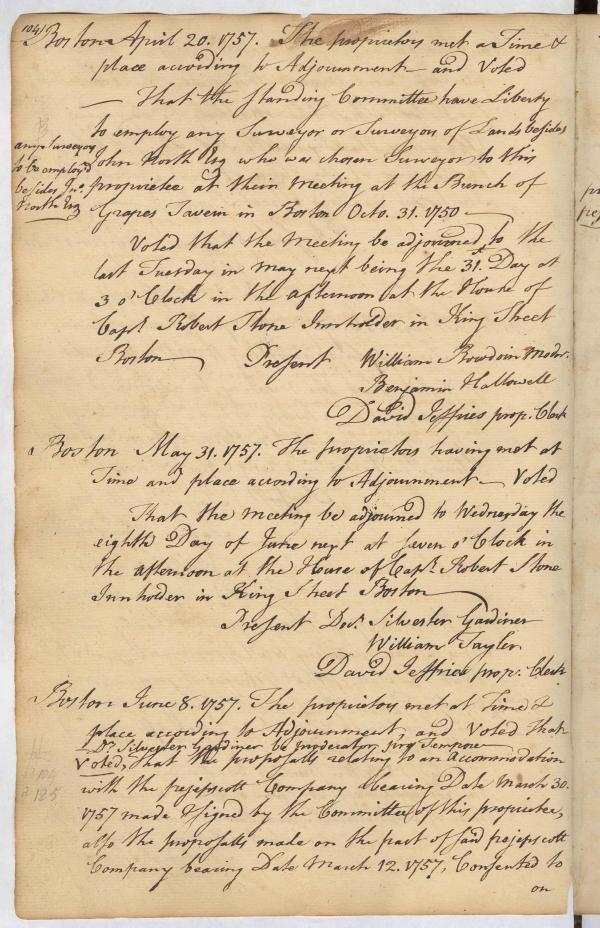 104
Boston April 20. 1757. The proprietors met a Time &
place according to Adjournment — and Voted
— That the standing Committee have Liberty
to employ any Surveyor or Surveyors of Lands besides
any Surveyor
to be employ'd
besides Jno.
North Esq
John North Esq who was chosen Surveyor to this
propriete at their meeting at the Bunch of
Grapes Tavern in Boston Octo. 31. 1750 —
Voted that the meeting be adjourned to the
last Tuesday in may next being the 31st. Day at
3 o'Clock in the afternoon at the House of
Capt. Robert Stone Innholder in King Street
Boston — Present William Bowdoin Modr.
Benjamin Hallowell
David Jeffries prop. Clerk
Boston May 31. 1757. The proprietors having met at
Time and place according to Adjournment — Voted
That the meeting be adjourned to Wednesday the
eighth Day of June next at seven o'Clock in
the afternoon at the House of Capt. Robert Stone
Innholder in King Street Boston —
Present Doc. Silvester Gardiner
William Tayler
David Jeffries prop. Clerk
Boston June 8. 1757. The proprietors met at Time &
place according to Adjournment, and Voted that
Dr. Silvester Gardiner be moderator pro Tempore
Voted, That the proposalls relating to an Accommodation
with the pejepscott Company bearing Date March 30.
1757 made & signed by the Committee of this propriete,
also the proposalls made on the part of said pejepscott
Company bearing Date March 12. 1757, Consented to
on